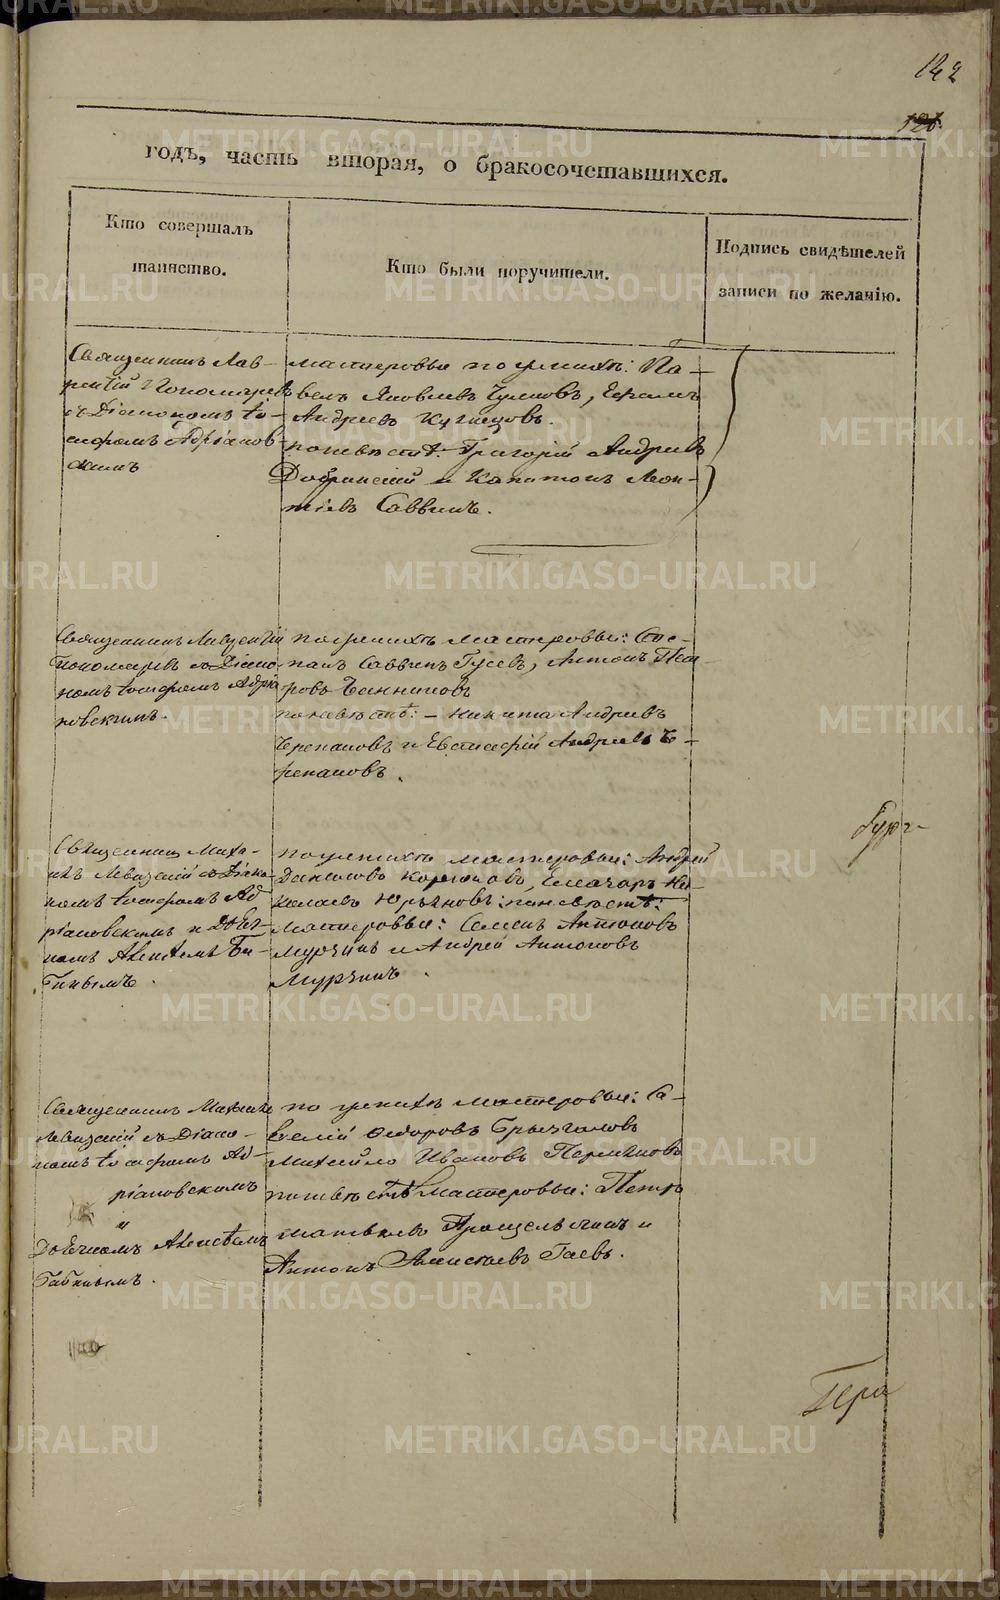 142
126.
годъ, часть вторая, о бракосочетавшихся.
Кто совершалъ
таинство.
Кто были поручители.
Подпись свидѣтелей
записи по желанію.
Священникъ Лав-
рентій Пономаревъ
съ Діакономъ Іо-
сифомъ Адріанов-
скимъ
мастеровые по женихѣ: Па-
велъ Яковлевъ
Андреевъ Кузнецовъ.
по невѣстѣ: Григорій Андреевъ
Добринскій и Капитонъ Леон-
тіевъ Саввинъ.
Священникъ Лаврентій
Пономаревъ съ Діако-
номъ Іосифомъ Адріа
новскимъ.
по женихѣ мастеровые: Сте-
панъ Саввинъ Гусевъ, Антонъ Пет-
ровъ Банниковъ
по невѣстѣ: – Никита Андреевъ
Черепановъ и Евстафій Андреевъ Че-
репановъ.
Священникъ Миха-
илъ Левазскій съ Діако-
номъ Іосифомъ Ад
ріановскимъ и
номъ Алексѣемъ
по женихѣ мастеровые: Андрей
Даниловъ Ни-
колаевъ Юрьяновъ: по невѣстѣ:
мастеровые: Семенъ Антоновъ
Мурзинъ и Андрей Антоновъ
Мурзинъ.
Священникъ Михаилъ
Левазскій съ Діако-
номъ Іосифомъ Ад-
ріановскимъ
и
Алексѣемъ
по женихѣ мастеровые: Са-
велій Федоровъ Брызгаловъ
Михайло Ивановъ Пермяковъ
по невѣстѣ мастеровые: Петръ
Матвѣевъ и
Антонъ Гаевъ.
METRIKI.GASO-URAL.RU